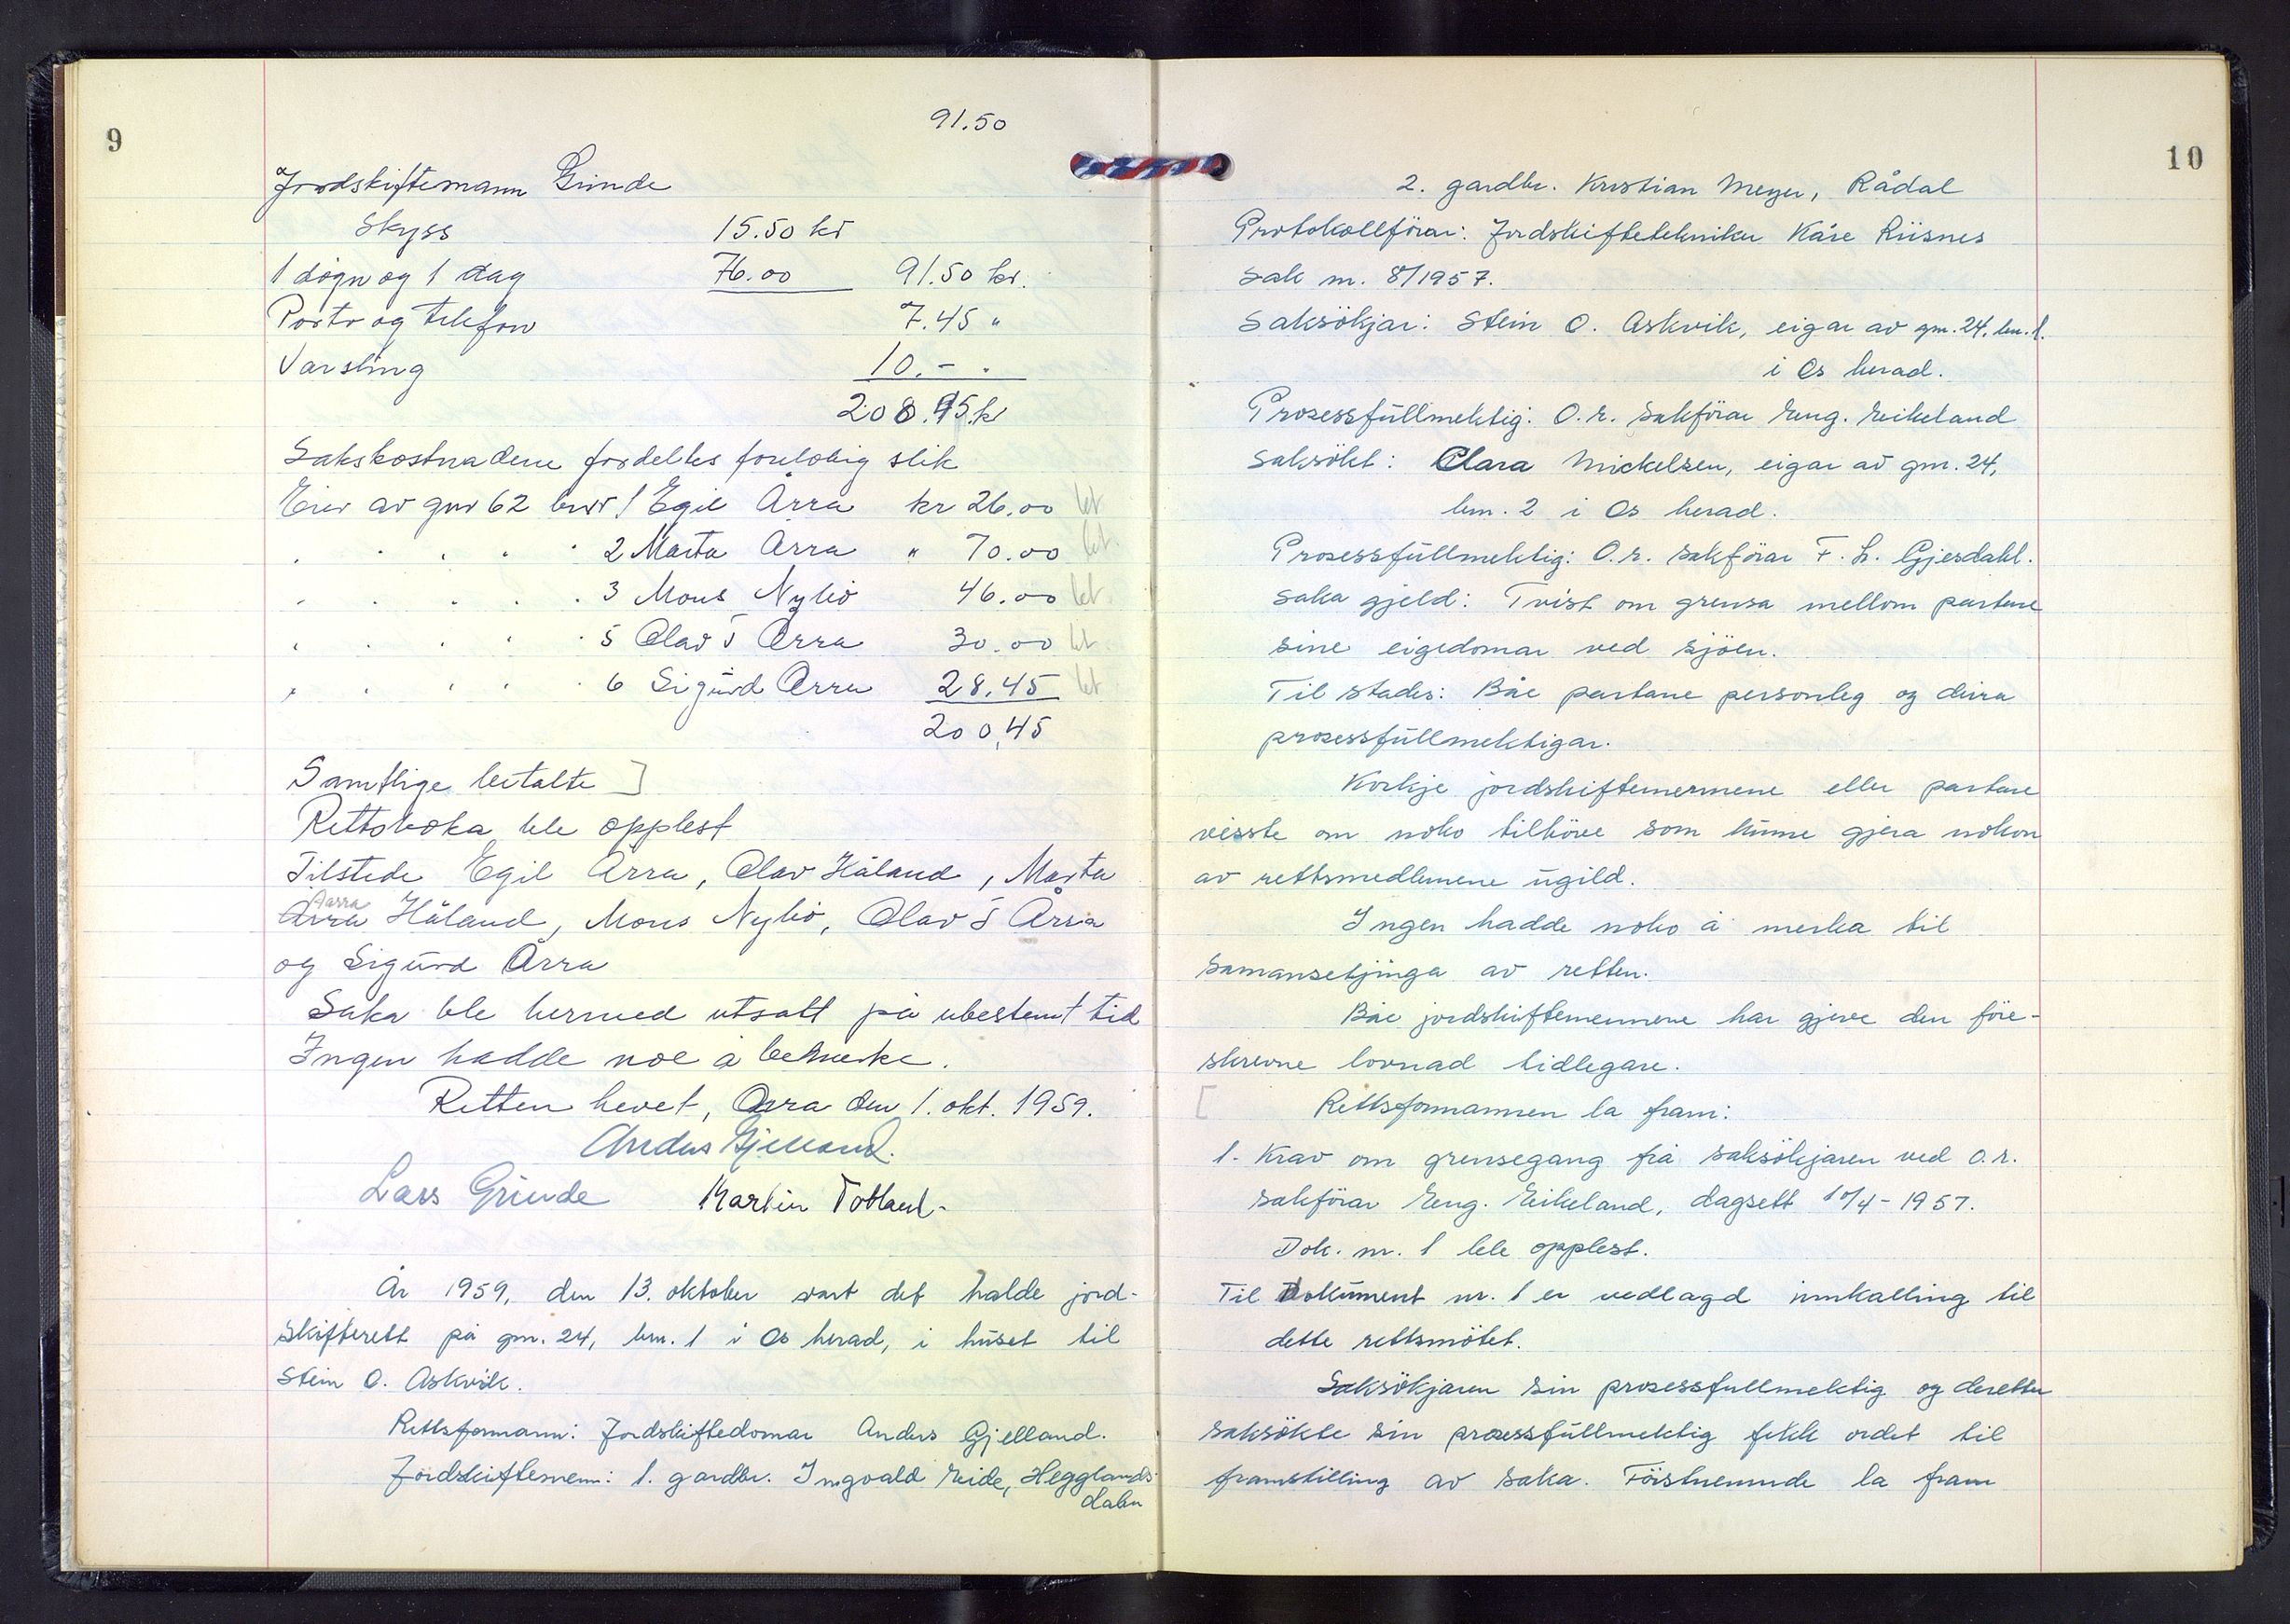 9
91.50
Jordskiftemann Grinde
Skyss 15.50 kr
1 døgn og 1 dag 76.00 91.50 kr.
Porto og telefon 7.45 "
Varsling 10.- .
208.95.kr
Sakskostnadene fordeltes foreløbig slik
Eier av gnr 62 bnr 1 Egil Årra kr 26.00 bet
. . . . . 2 Marta Årra " 70.00 bet.
. . . . . 3 Mons Nybø 46.00 bet.
. . . . . 5 Olav S Årra 30.00 bet.
. . . . . 6 Sigurd Årra 28.45 bet
200,45
Samtlige betalte ]
Rettsboka ble opplest
Tilstede Egil Årra, Olav Håland, Marta
Aarra
Årra Håland, Mons Nybø, Olav S Årra
og Sigurd Årra
Saka ble hermed utsatt på ubestemt tid
Ingen hadde noe å bemerke.
Retten hevet, Årra den 1. okt. 1959.
Anders Gjelland.
Lars Grinde Martin Totland.
År 1959, den 13. oktober vart det halde jord-
skifterett på gnr. 24, bnr. 1 i Os herad, i huset til
Stein O. Askvik.
Rettsformann: Jordskiftedomar Anders Gjelland.
Jordskiftemenn: 1. gardbr. Ingvald Eide, Hegglands-
dalen
10
2. gardbr. Kristian Meyer, Rådal
Protokollförar: Jordskiftetekniker Kåre Riisnes
Sak nr. 8/1957.
Saksökjar: Stein O. Askvik, eigar av gnr. 24, bnr. 1.
i Os herad.
Prosessfullmektig: O.r. sakförar Eng. Eikeland
Saksökt: Clara Mickelsen, eigar av gnr. 24,
bnr. 2 i Os herad.
Prosessfullmektig: O.r. sakförar F. L. Gjesdahl.
Saka gjeld: Tvist om grensa mellom partane
sine eigedomar ved sjöen.
Til stades: Båe partane personleg og deira
prosessfullmektigar.
Korkje jordskiftemennene eller partane
visste om noko tilhöve som kunne gjera nokon
av rettsmedlemene ugild.
Ingen hadde noko å merka til
samansetjinga av retten.
Båe jordskiftemennene har gjeve den före-
skrevne lovnad tidlegare.
[ Rettsformannen la fram:
1. Krav om grensegang frå saksökjaren ved o.r.
sakförar Eng. Eikeland, dagsett 10/4-1957.
Dok. nr. 1 ble opplest.
Til Dokument nr. 1 er vedlagd innkalling til
dette rettsmötet.
Saksökjaren sin prosessfullmektig og deretter
saksökte sin prosessfullmektig fekk ordet til
framstilling av saka. Förstnemnde la fram